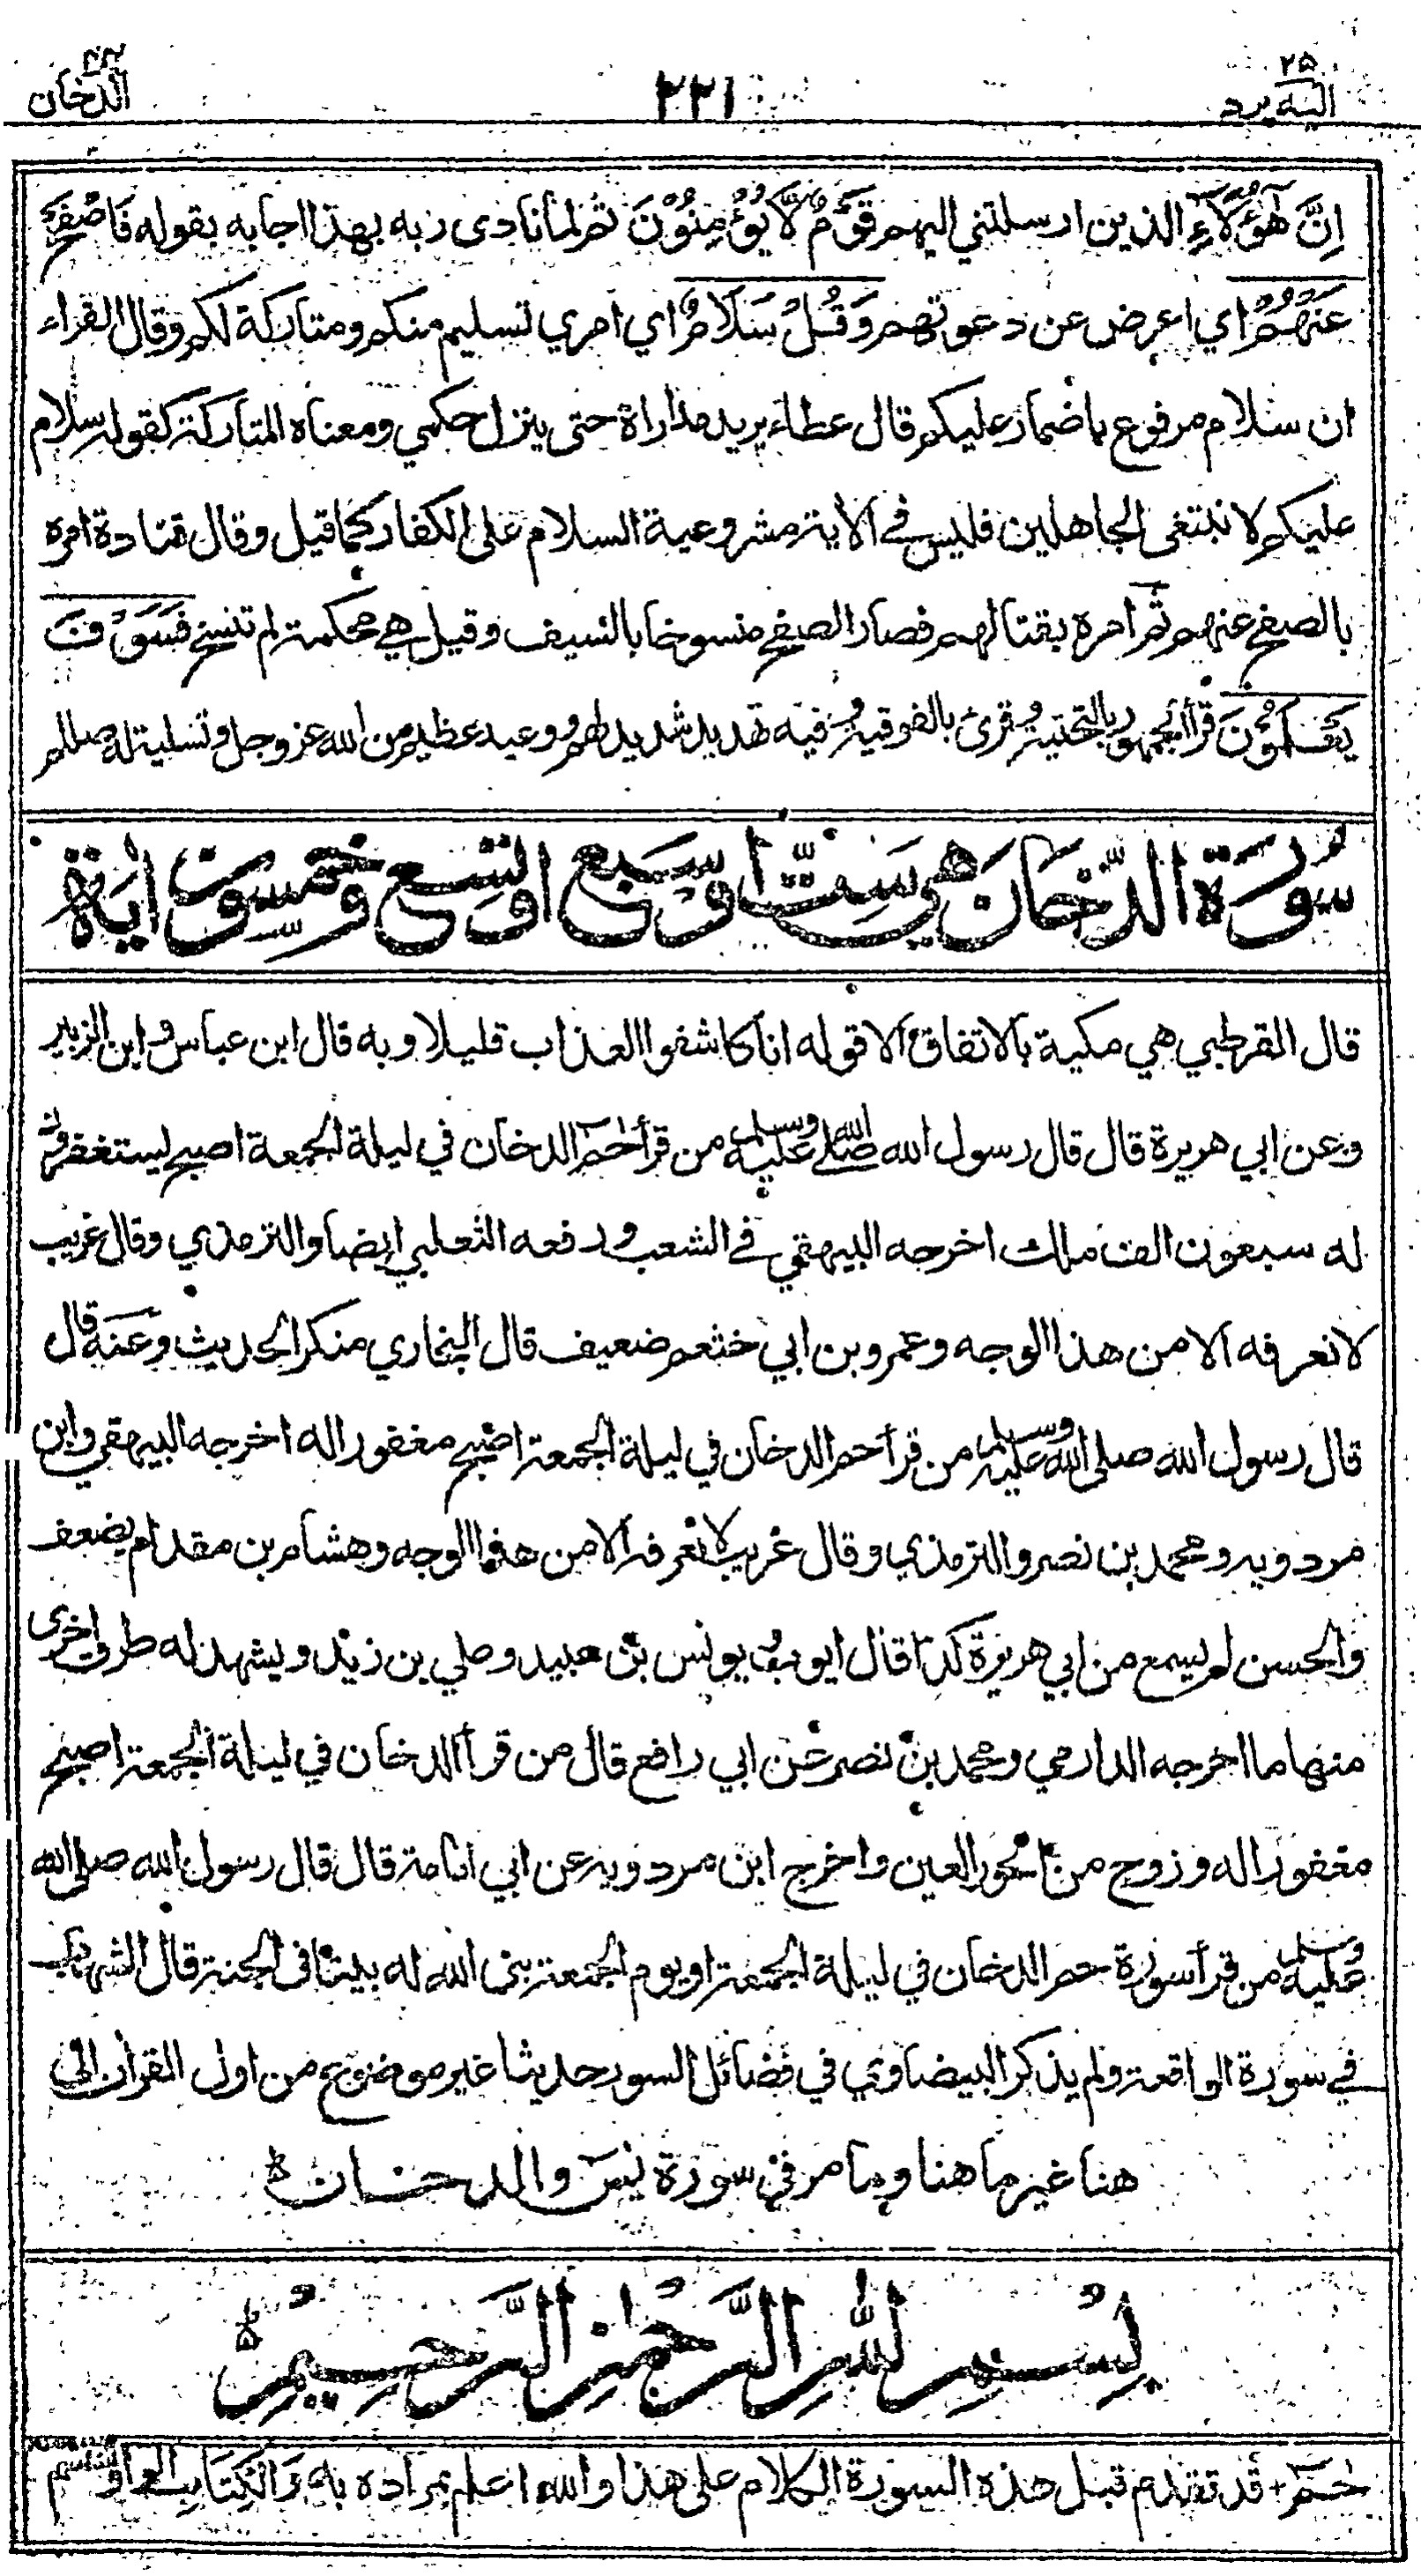 ٢٥ اليه يرد ٢٢١ ٤٤ الدخان
اِنَّ هٰٓؤُلَآءِ الذين ارسلتني اليهم قَوْمٌ لَّا يُؤْمِنُوْنَ ثم لما نادى ربه بهذا اجابه بقوله فَاصْفَحْ
عَنْهُمْ اي اعرض عن دعوتهم وَقُلْ سَلَامٌ اي امري تسليم منكم ومتاركة لكم وقال الفراء
ان سلام مرفوع باضمار عليكم قال عطاء يريد مداراة حتى ينزل حكمي ومعناه المتاركة كقوله سلام
عليكم لا نبتغى الجاهلين فليس في الاية مشروعية السلام على الكفار كما قيل وقال قتادة امره
بالصفح عنهم ثم امره بقتالهم فصار الصفح منسوخا بالسيف وقيل هي محكمة لم تنسخ فَسَوْفَ
يَعْلَمُوْنَ قرأ الجمهور بالتحتية وقرئ بالفوقية وفيه تهديد شديد لهم ووعيد عظيم من الله عز وجل وتسلية له صللم
سورة الدخان هي ست او سبع او تسع وخمسون اية
قال القرطبي هي مكية بالاتفاق الا قوله انا كاشفوا العذاب قليلا وبه قال ابن عباس وابن الزبير
وعن ابي هريرة قال قال رسول الله صلى الله عليه وسلم من قرأ حم الدخان في ليلة الجمعة اصبح يستغفر
له سبعون الف ملك اخرجه البيهقي في الشعب ورفعه الثعلبي ايضا والترمذي وقال غريب
لا نعرفه الا من هذا الوجه وعمرو بن ابي خثعم ضعيف قال البخاري منكر الحديث وعنه قال
قال رسول الله صلى الله عليه وسلم من قرأ حم الدخان في ليلة الجمعة اصبح مغفورا له اخرجه البيهقي وابن
مردويه ومحمد بن نصر والترمذي وقال غريب لا نعرفه الا من هذا الوجه وهشام بن مقدام يضعف
والحسن لم يسمع من ابي هريرة كذا قال ايوب ويونس بن عبيد وعلي بن زيد ويشهد له طرق اخرى
منها ما اخرجه الدارمي ومحمد بن نصر عن ابي رافع قال من قرأ الدخان في ليلة الجمعة اصبح
مغفورا له وزوج من الحور العين واخرج ابن مردويه عن ابي امامة قال قال رسول الله صلى الله
عليه وسلم من قرأ سورة حم الدخان في ليلة الجمعة او يوم الجمعة بنى الله له بيتا في الجنة قال الشهاب
في سورة الواقعة ولم يذكر البيضاوي في فضائل السور حديثا غير موضوع من اول القران الى
هنا غير ما هنا وما مر في سورة يس والدخان
بسم الله الرحمن الرحيم
حم قد تقدم قبل هذه السورة الكلام على هذا والله اعلم بمراده به وَالْكِتَابِ الواو للقسم